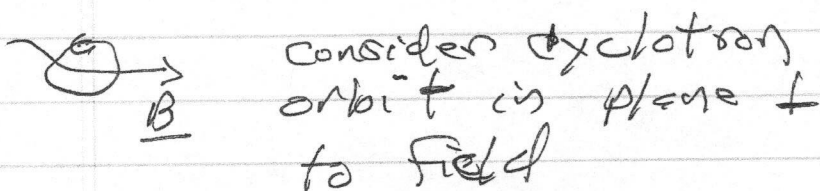 consider cyclotron
orbit in plane ⊥
B to field